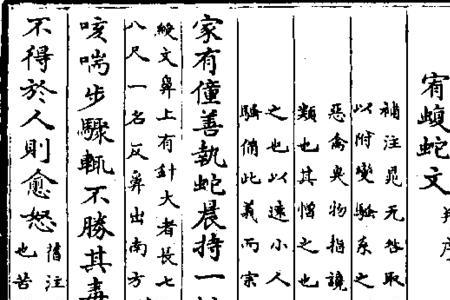 宥蝮蛇文
補注晁无咎取
以附變騷系之
惡禽臭物指讒
類也其憎之也
之也以遠小人
騷備此義而宗
家有僮善執蛇晨持一
綬文鼻上有針大者長七
八尺一名反鼻出南方
咳喘步驟輒不勝其毒
不得於人則愈怒
舊注
也苦